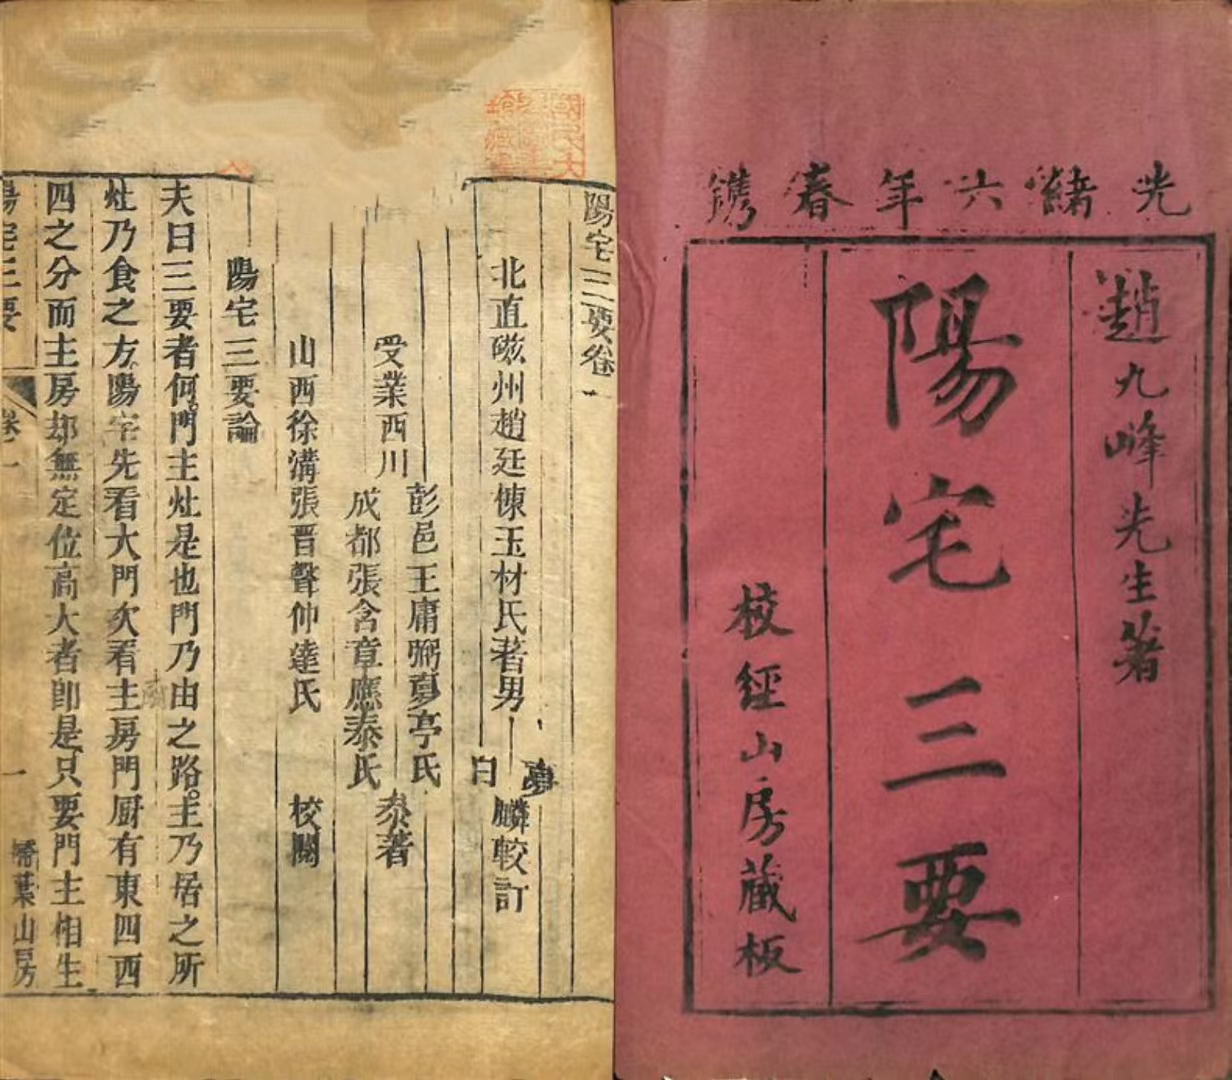 光緒六年春鐫
趙九峰先生著
陽宅三要
校經山房藏板
陽宅三要卷一
北直磁州趙廷棟玉材氏著男
夢
日
麟較訂
受業西川
彭邑王庸弼夏亭氏
成都張含章應泰氏
泰著
山西徐溝張晋聲仲達氏 校閱
陽宅三要論
夫曰三要者何門主灶是也門乃由之路主乃居之所
灶乃食之方陽宅先看大門次看主房門厨有東四西
四之分而主房却無定位高大者即是只要門主相生
陽宅三要
卷一
一
掃葉山房